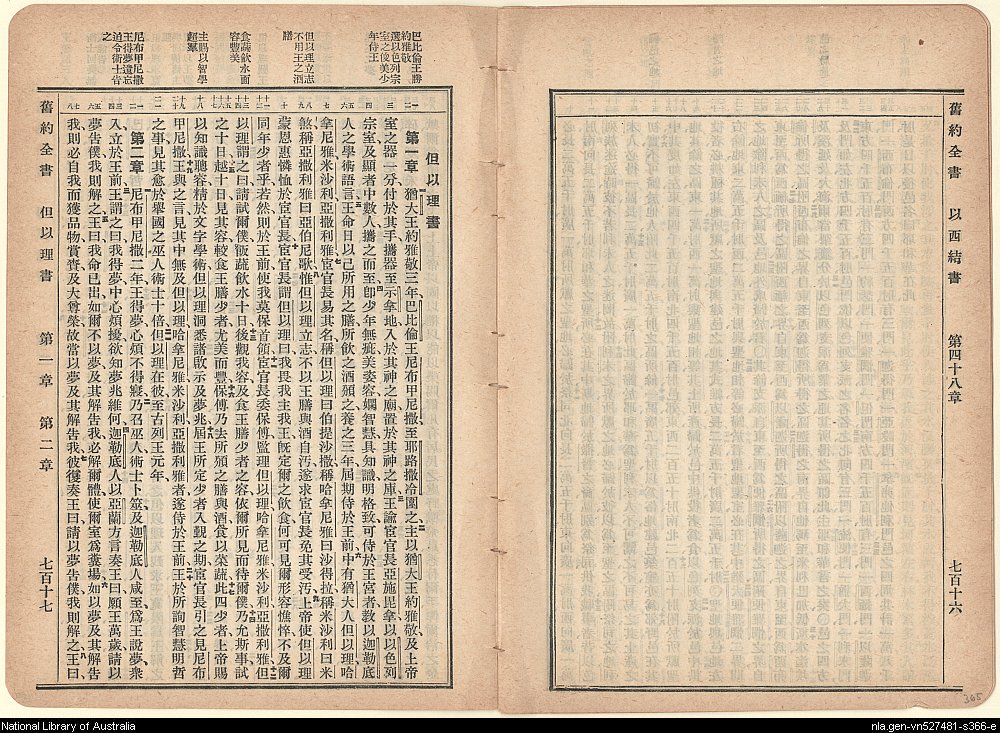 舊約全書 以西結書 第四十八章 七百十六
365
巴比倫王勝
約雅敬
選以色列宗
室之俊美少
年侍王
但以理立志
不用王之酒
膳
食蔬飲水面
容豐美
主賜以智學
超羣
尼布甲尼撒
王得夢遺忘
迫令術士告
之
但以理書
第一章 猶大王約雅敬三年巴比倫王尼布甲尼撒至耶路撒冷圍之主以猶大王約雅敬及上帝
室之器一分付於其手攜器至示拿地入於其神之廟置於其神之庫王諭宦官長亞施毘拿以以色列
宗室及顯者中數人攜之而至卽少年無疵美姿容嫺智慧具知識明格致可侍於王宮者敎以迦勒底
人之學術語言王命日以己所用之膳所飲之酒頒之養之三年屆期侍於王前中有猶大人但以理哈
拿尼雅米沙利亞撒利雅宦官長易其名稱但以理曰伯提沙撒稱哈拿尼雅曰沙得拉稱米沙利曰米
煞稱亞撒利雅曰亞伯尼歌惟但以理立志不以王膳與酒自汚遂求宦官長免其受汚上帝使但以理
蒙恩惠憐恤於宦官長宦官長謂但以理曰我畏我主我王旣定爾之飲食何可見爾形容憔悴不及爾
同年少者乎若然則於王前使我莫保首領宦官長委保傅監理但以理哈拿尼雅米沙利亞撒利雅但
以理謂之曰請試爾僕飯蔬飲水十日後觀我容及食王膳少者之容依爾所見而待爾僕乃允斯事試
之十日越十日見其容較食王膳少者尤美而豐保傅乃去所頒之膳與酒食以菜蔬此四少者上帝賜
以知識聰容精於文字學術但以理洞悉諸啟示及夢兆屆王所定少者入覲之期宦官長引之見尼布
甲尼撒王與之言見其中無及但以理哈拿尼雅米沙利亞撒利雅者遂侍於王前王於所詢智慧明哲
之事見其愈於舉國之巫人術士十倍但以理在彼至古列王元年
第二章 尼布甲尼撒二年王得夢心煩不得寢乃召巫人術士卜筮及迦勒底人咸至爲王說夢衆
入立於王前王謂之曰我得夢中心煩擾欲知夢兆維何迦勒底人以亞蘭方言奏王曰願王萬歲請以
夢告僕我則解之王曰我命已出如爾不以夢及其解告我必解爾體使爾室爲糞場如以夢及其解告
我則必自我而獲品物賞賚及大尊榮故當以夢及其解告我彼復奏王曰請以夢告僕我則解之王曰
舊約全書 但以理書 第一章 第二章 七百十七
National Library of Australia
nla.gen-vn527481-s366-e